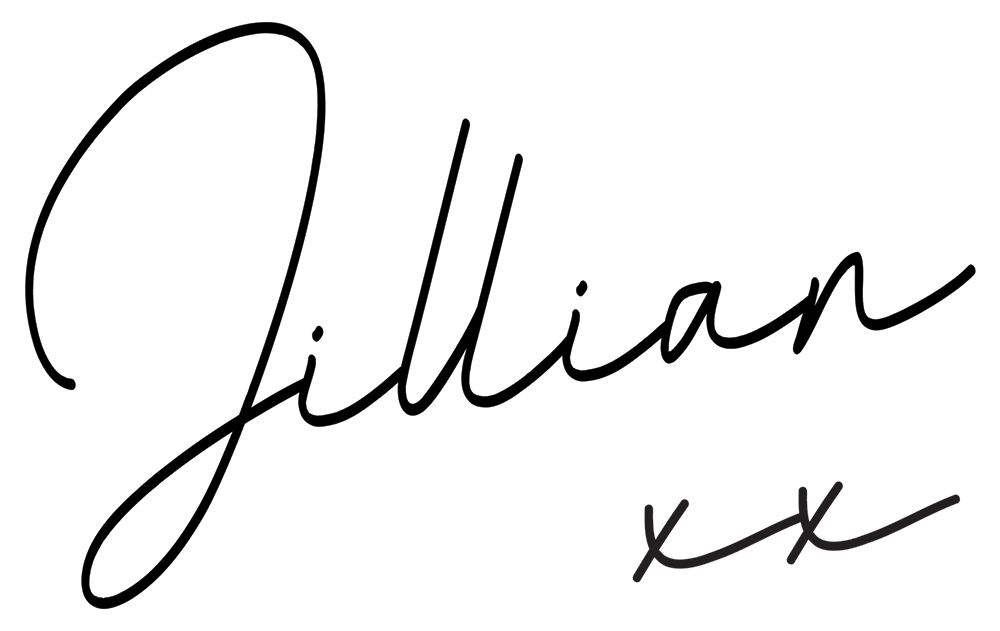 Jillian
xx